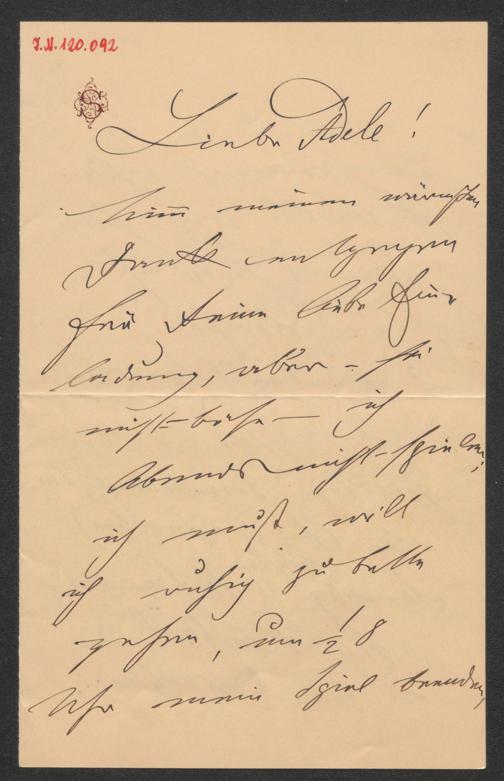 J.N. 120.092
S
Liebe Adele!
Nimm meinen wärmsten
Dank entgegen
für Deine liebe Ein-
ladung, aber – sei
nicht böse – ich
Abends nicht spielen,
ich muß, will
ich ruhig zu Bette
gehen, um ½ 8
Uhr mein Spiel beenden,